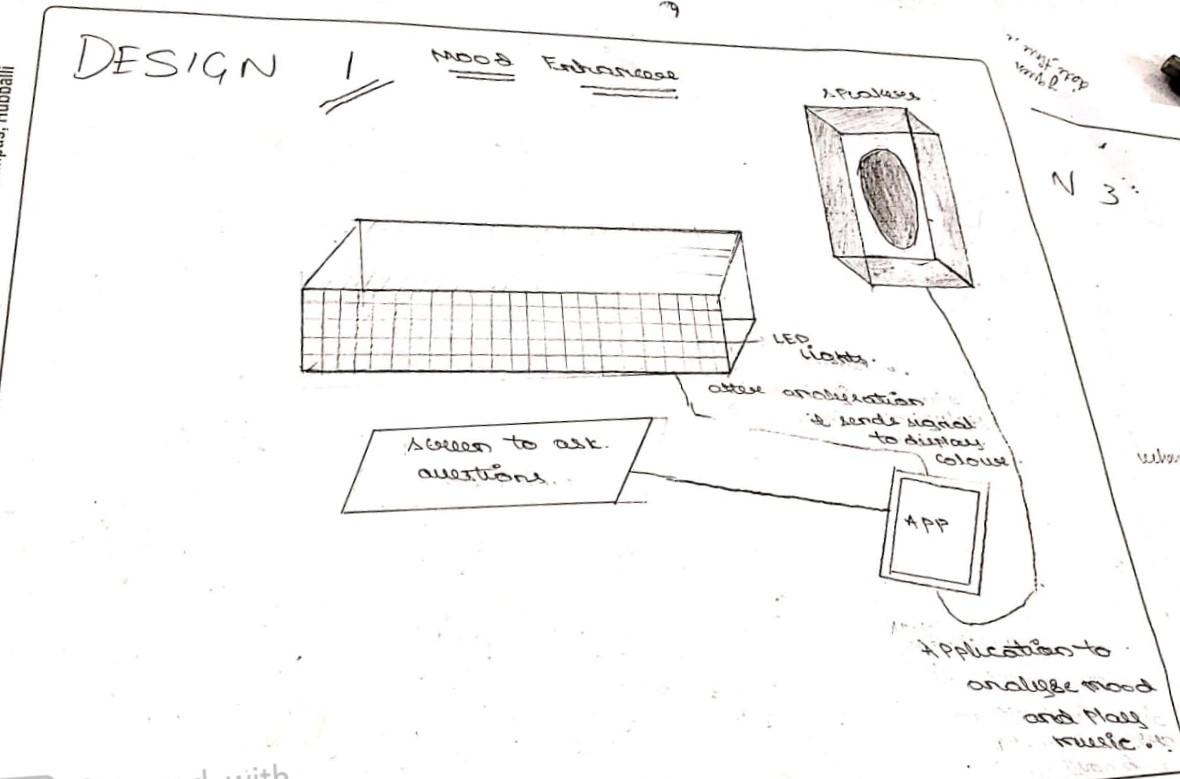 DESIGN 1
Mood Enhancer
speakers
LED
lights.
after analysation
it sends signal
to display
colour
screen to ask
questions.
APP
Application to
analyse mood
and Play
music.
N 3:
with
Hubballi